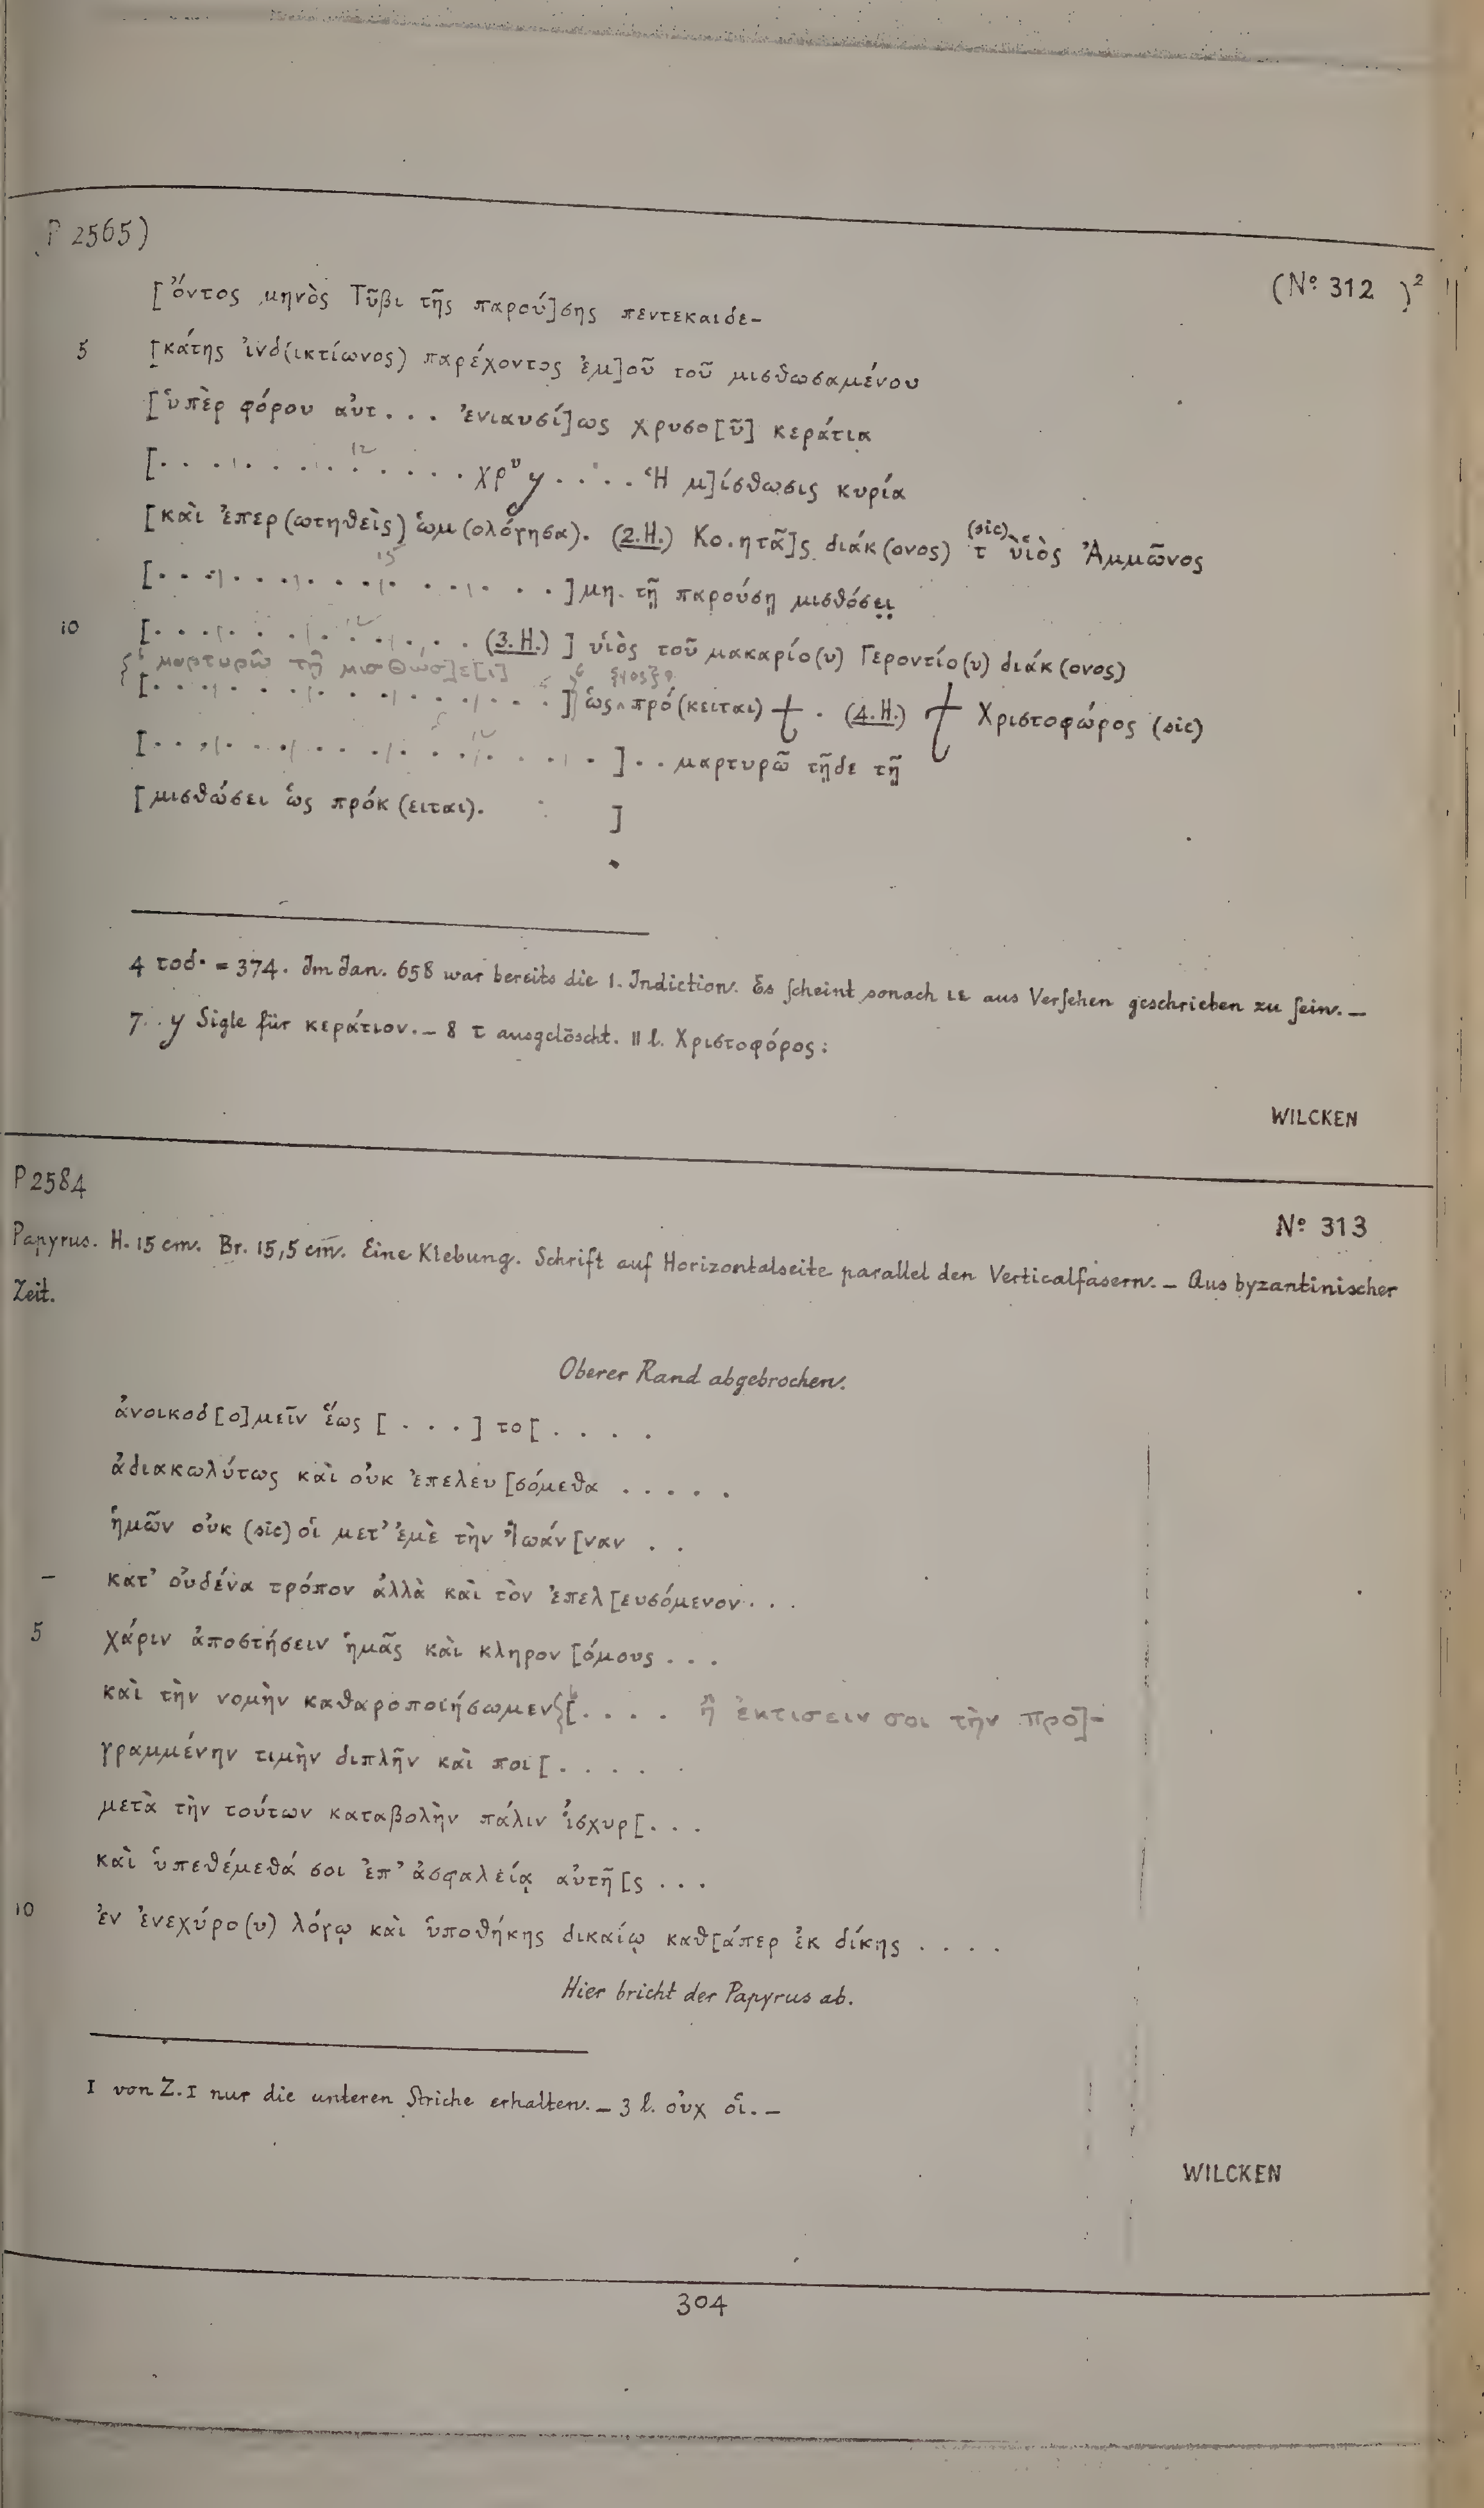 P 2565)
(Nº 312 )²
[ὄντος μηνὸς Τῦβι τῆς παρού]σης πεντεκαιδε-
5 [κάτης ἰνδ(ικτίωνος) παρέχοντος ἐμ]οῦ τοῦ μισθωσαμένου
[ὑπὲρ φόρου αὐτ... ἐνιαυσί]ως χρυσο[ῦ] κεράτια
[. . . . . . . . . . . . χρυ y . . . . Ἡ μ]ίσθωσις κυρία
[καὶ ἐπερ(ωτηθεὶς) ὡμ(ολόγησα). (2.H.) Κο.ητᾶ]ς διάκ(ονος) τ (sic) ὑιὸς Ἀμμῶνος
[. . . . . . . . . . . . . . .]μη. τῇ παρούσῃ μισθόσει
10 [. . . . . . . . . . . . (3.H.) ] υἱὸς τοῦ μακαρίο(υ) Γεροντίο(υ) διάκ(ονος)
μαρτυρῶ τῇ μισθώσ]ε[ι]
[. . . . . . . . . . . . . . .] ὡς πρό(κειται) ┼ . (4.H.) ┼ Χριστοφώρος (sic)
[. . . . . . . . . . . . . . . ] . . μαρτυρῶ τῇδε τῇ
[μισθώσει ὡς πρόκ(ειται). ]
4 τοδ· = 374. Im Jan. 658 war bereits die 1. Indiction. Es scheint sonach ιε aus Versehen geschrieben zu sein. —
7. y Sigle für κεράτιον. — 8 τ ausgelöscht. 11 l. Χριστοφόρος:
WILCKEN
P 2584
Nº 313
Papyrus. H. 15 cm. Br. 15,5 cm. Eine Klebung. Schrift auf Horizontalseite parallel den Verticalfasern. — Aus byzantinischer
Zeit.
Oberer Rand abgebrochen.
ἀνοικοδ[ο]μεῖν ἕως [ . . . ] το[ . . . .
ἀδιακωλύτως καὶ οὐκ ἐπελευ[σόμεθα . . . . .
ἡμῶν οὐκ (sic) οἱ μετ' ἐμὲ τὴν Ἰωάν[ναν . .
– κατ' οὐδένα τρόπον ἀλλὰ καὶ τὸν ἐπελ[ευσόμενον . . .
5 χάριν ἀποστήσειν ἡμᾶς καὶ κληρον[όμους . . .
καὶ τὴν νομὴν καθαροποιήσωμεν [. . . . ἢ ἐκτισειν σοι τὴν προ]-
γραμμένην τιμὴν διπλῆν καὶ ποι[. . . . .
μετὰ τὴν τούτων καταβολὴν πάλιν ἰσχυρ[. . .
καὶ ὑπεθέμεθά σοι ἐπ' ἀσφαλείᾳ αὐτῆ[ς . . .
10 ἐν ἐνεχύρο(υ) λόγῳ καὶ ὑποθήκης δικαίῳ καθ[άπερ ἐκ δίκης . . . .
Hier bricht der Papyrus ab.
I von Z. 1 nur die unteren Striche erhalten. — 3 l. οὐχ οἱ. —
WILCKEN
304